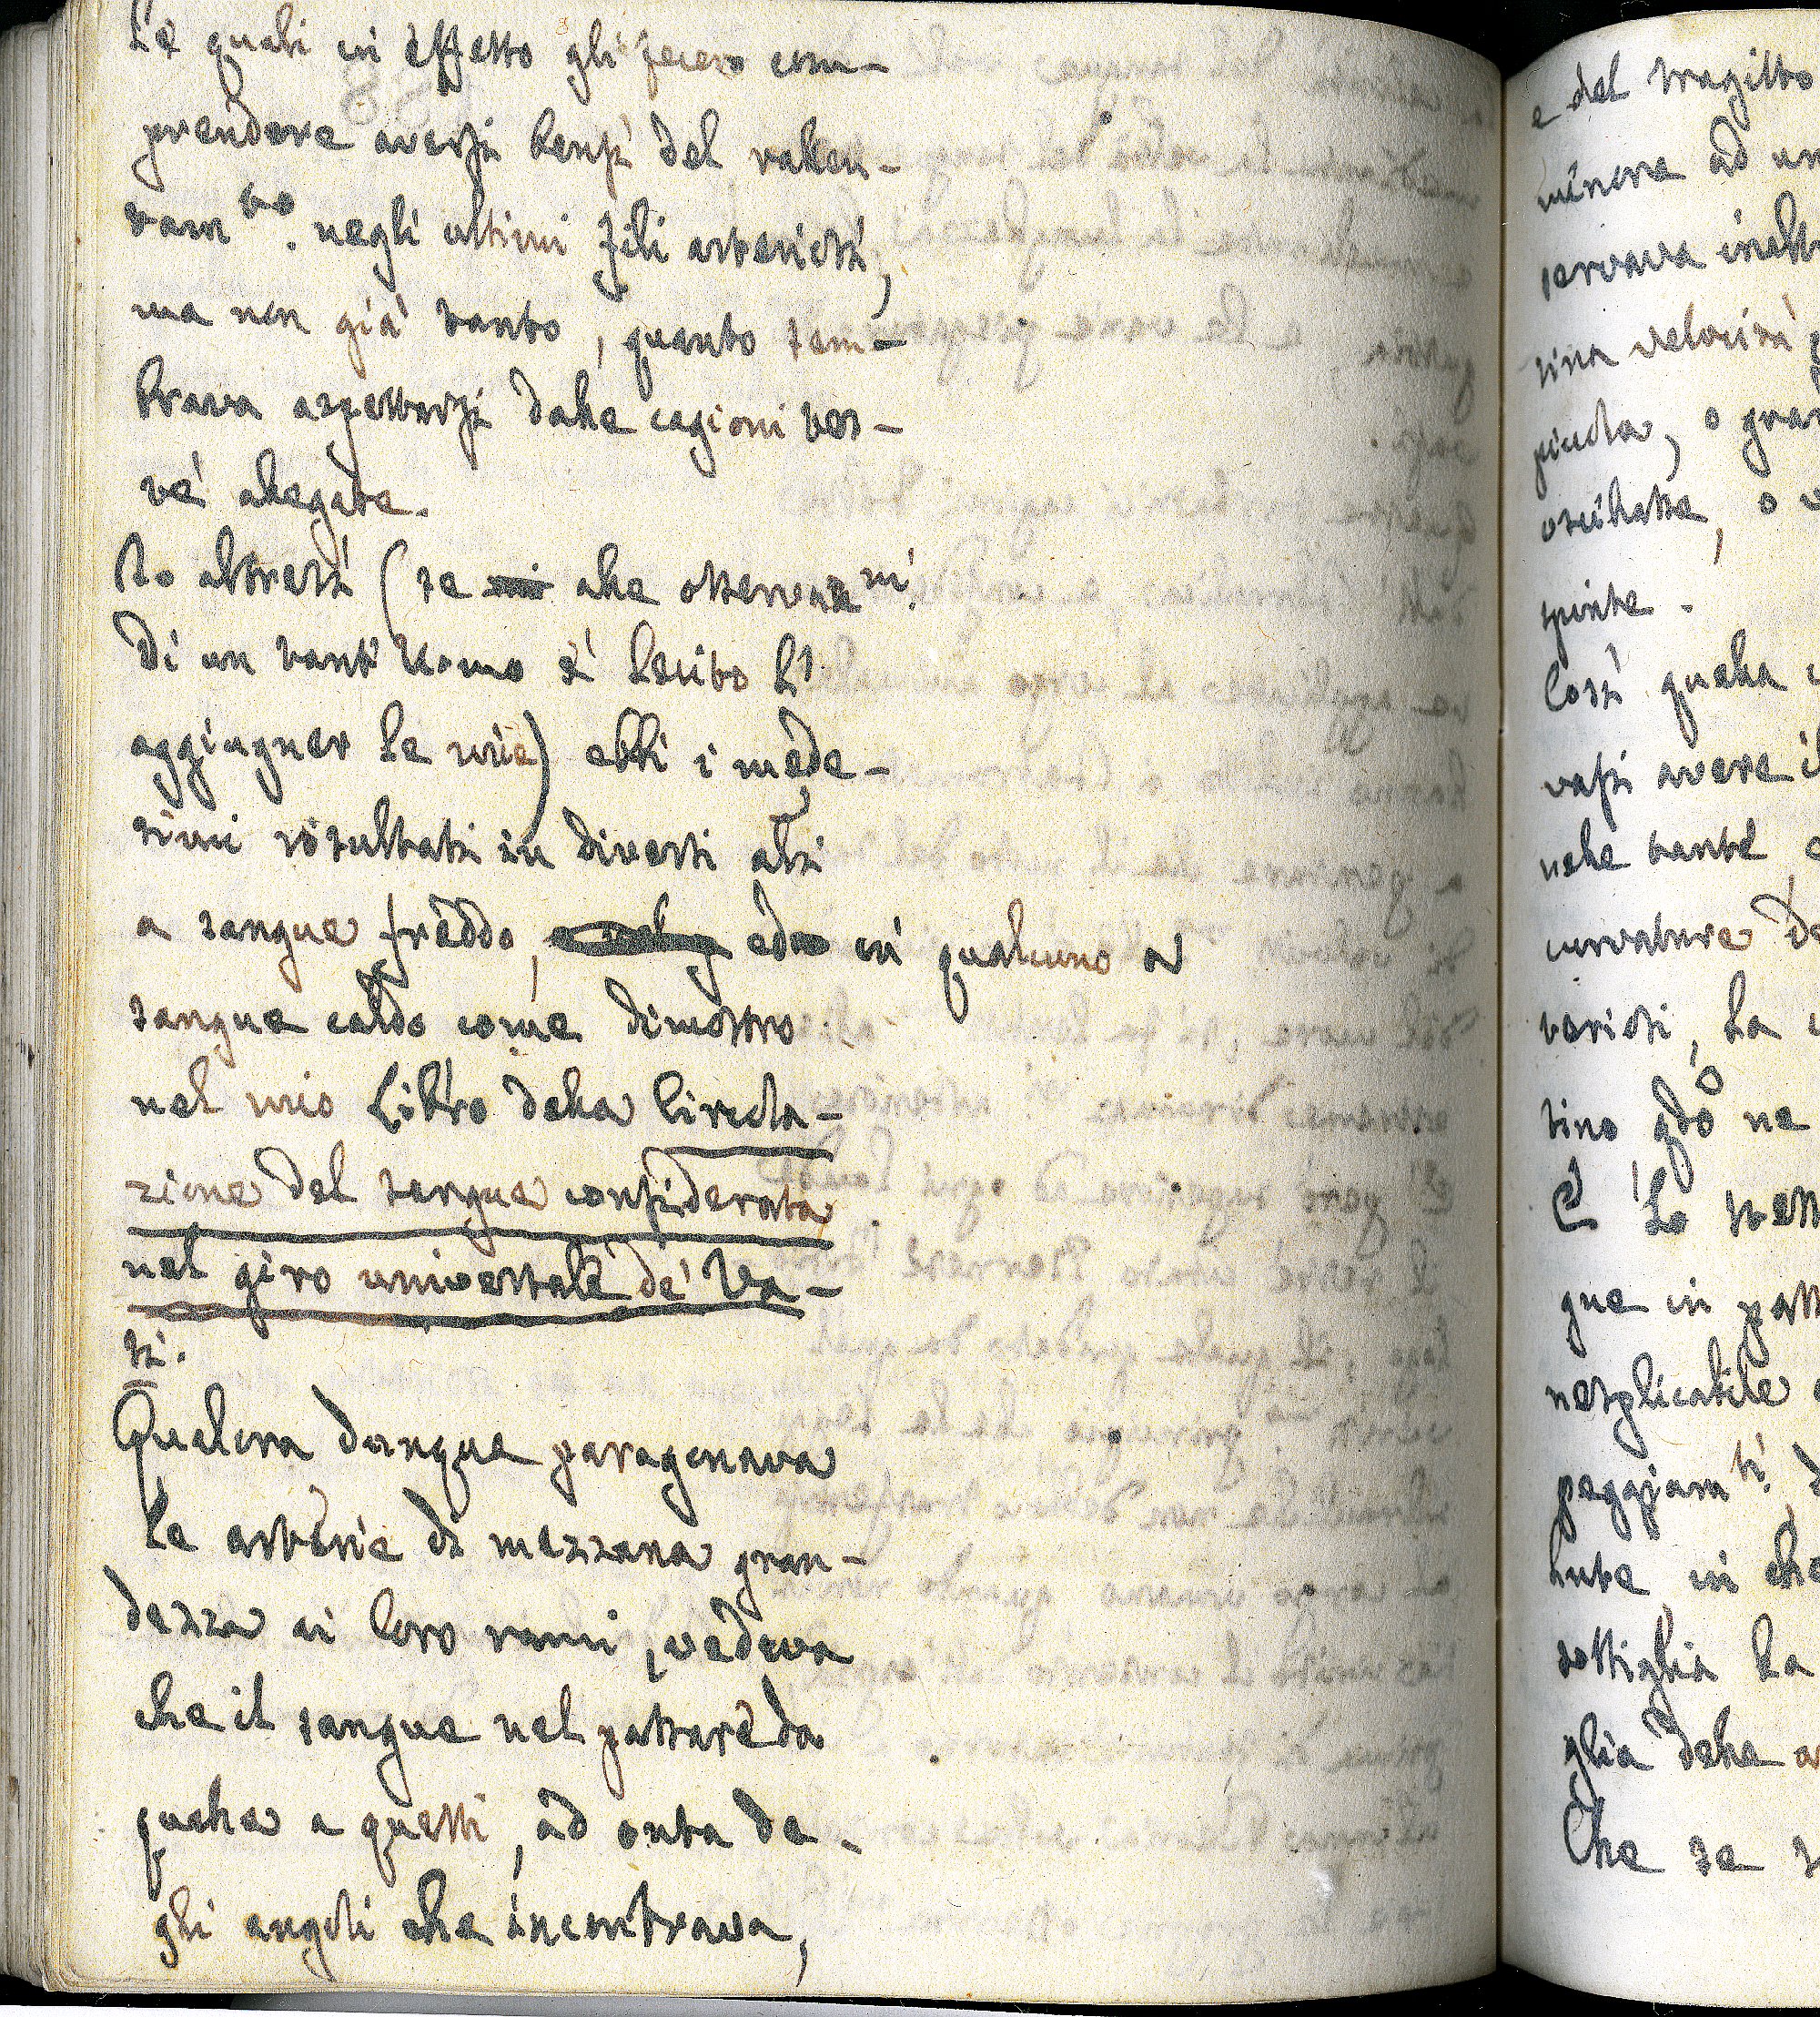 Le quali in effetto gli fecero com-
prendere aversi bensì del rallen-
tam.to negli ultimi fili arteriosi,
ma non già tanto, quanto sem-
brava aspettarsi dalle cagioni tes-
tè allegate.
Io altresì (se alle osservaz.ni
di un tant'Uomo è lecito l'
aggiugner le mie) ebbi i mede-
simi risultati in diversi altri
a sangue freddo, ed in qualcuno a
sangue caldo come dimostro
nel mio Libro della Circola-
zione del sangue considerata
nel giro universale de' Va-
si.
Qualora dunque paragonava
le arterie di mezzana gran-
dezza ai loro rami, vedeva
che il sangue nel passare da
quelle a questi, ad onta de-
gli angoli che incontrava,
e del tragitto
minore ad un
servava
sima velocità
piccola, o
oscillasse, o
spinte.
Così quella
vasi avere il
nelle tante
curvature
la
sino gdo ne
E lo stess
gue in pass
nesplicabile
peggiam.ti
lute in che
sottiglia la
glia delle
Che se